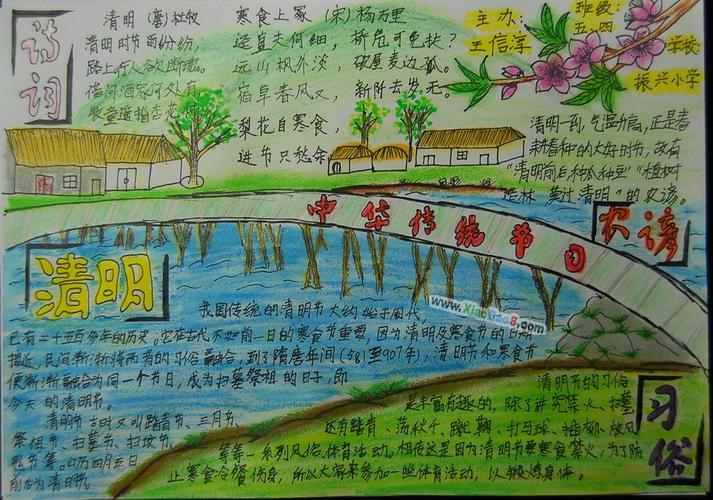 诗词
清明 (唐) 杜牧
清明时节雨纷纷,
路上行人欲断魂。
借问酒家何处有
牧童遥指杏花村
寒食上冢 (宋) 杨万里
迳直夫何细, 桥危可免扶?
远山枫外淡, 破屋麦边孤。
宿草春风又, 新阡去岁无。
梨花自寒食,
进节只愁余
主办:
王信淳
班级:
五.四
学校:
振兴小学
清明一到,气温升高,正是春
耕春种的大好时节,故有
"清明前后,种瓜种豆""植树
造林 莫过清明"的农谚。
农谚
中华传统节日
清明
www.Xiaobao8.com
我国传统的清明节大约始于周代,
已有二千五百多年的历史。它在古代不如前一日的寒食节重要,因为清明及寒食节的日期
接近,民间渐渐将两者的习俗融合,到了隋唐年间(581至907年),清明节和寒食节
便渐渐融合为同一个节日,成为扫墓祭祖的日子,即
今天的清明节。
清明节古时又叫踏青节、三月节、
祭祖节、扫墓节、扫坟节、
鬼节等。公历四月五日
前后为清明节。
习俗
清明节的习俗
是丰富有趣的,除了讲究禁火、扫墓
还有踏青、荡秋千、蹴鞠、打马球、插柳、放风
筝等一系列风俗体育活动。相传这是因为清明节要寒食禁火,为了防
止寒食冷餐伤身,所以大家来参加一些体育活动,以锻炼身体。